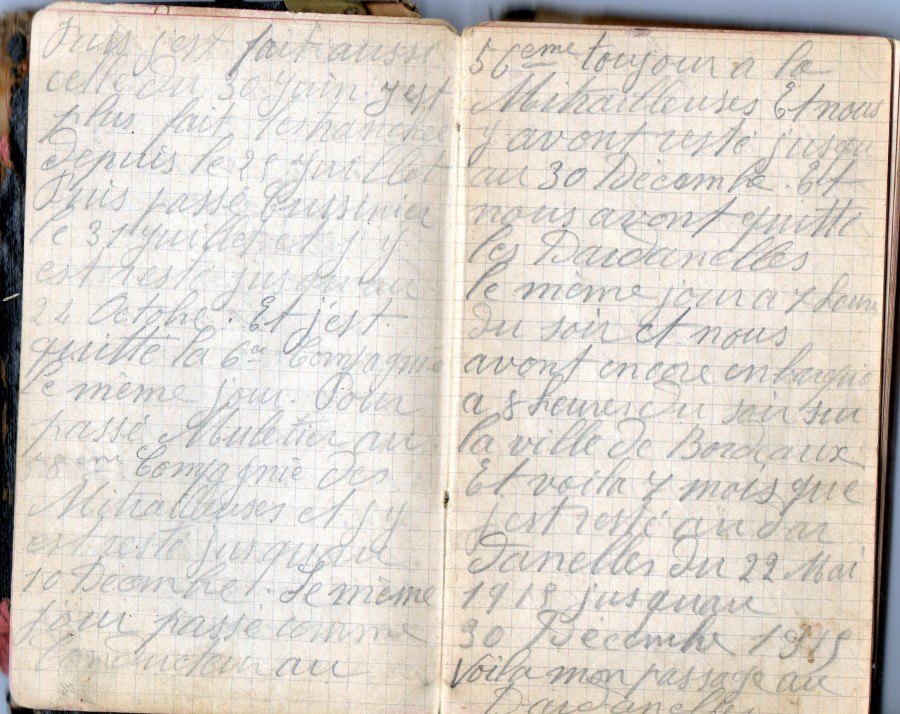 Puis j'est fait aussi
celle du 30 Juin y est
plus fait les tranché
Depuis le 25 Juillet
Puis passé Cuisinier
le 31 Juillet et j y
est resté jusquau
24 Octobre. Et j'est
quitté la 6e Compagnie
le même jour. Pour
passé Muletier au
58eme Compagnie des
Mitrailleuses et j y
est resté jusquau
10 Décembre. Le même
jour passé comme
Conducteur au
56eme toujour a la
Mitrailleuses Et nous
y avont resté jusqu
au 30 Décembe. Et
nous avont quitté
les Dardanelles
le même jour a 7 heures
du soir et nous
avont encore enbarqué
a 8 heures du soir sur
la ville de Bordeaux
Et voila 7 mois que
j'est resté au Dar
danelles du 22 Mai
1915 jusquau
30 Décembre 1915
Voila mon passage au
Dardanelles